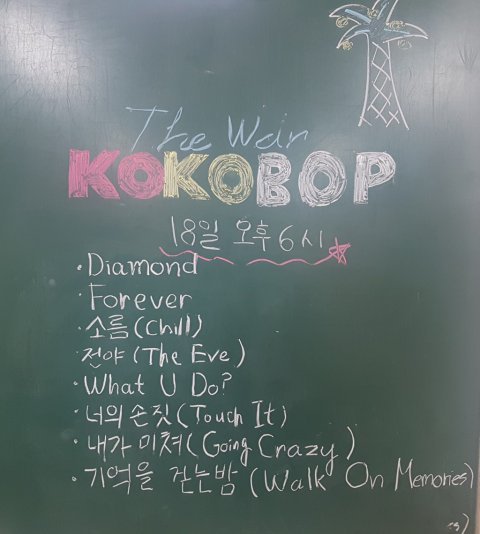 The War
KOKOBOP
18일 오후 6시
· Diamond
· Forever
· 소름 (Chill)
· 전야 (The Eve)
· What U Do?
· 너의 손짓 (Touch It)
· 내가 미쳐 (Going Crazy)
· 기억을 걷는밤 (Walk On Memories)